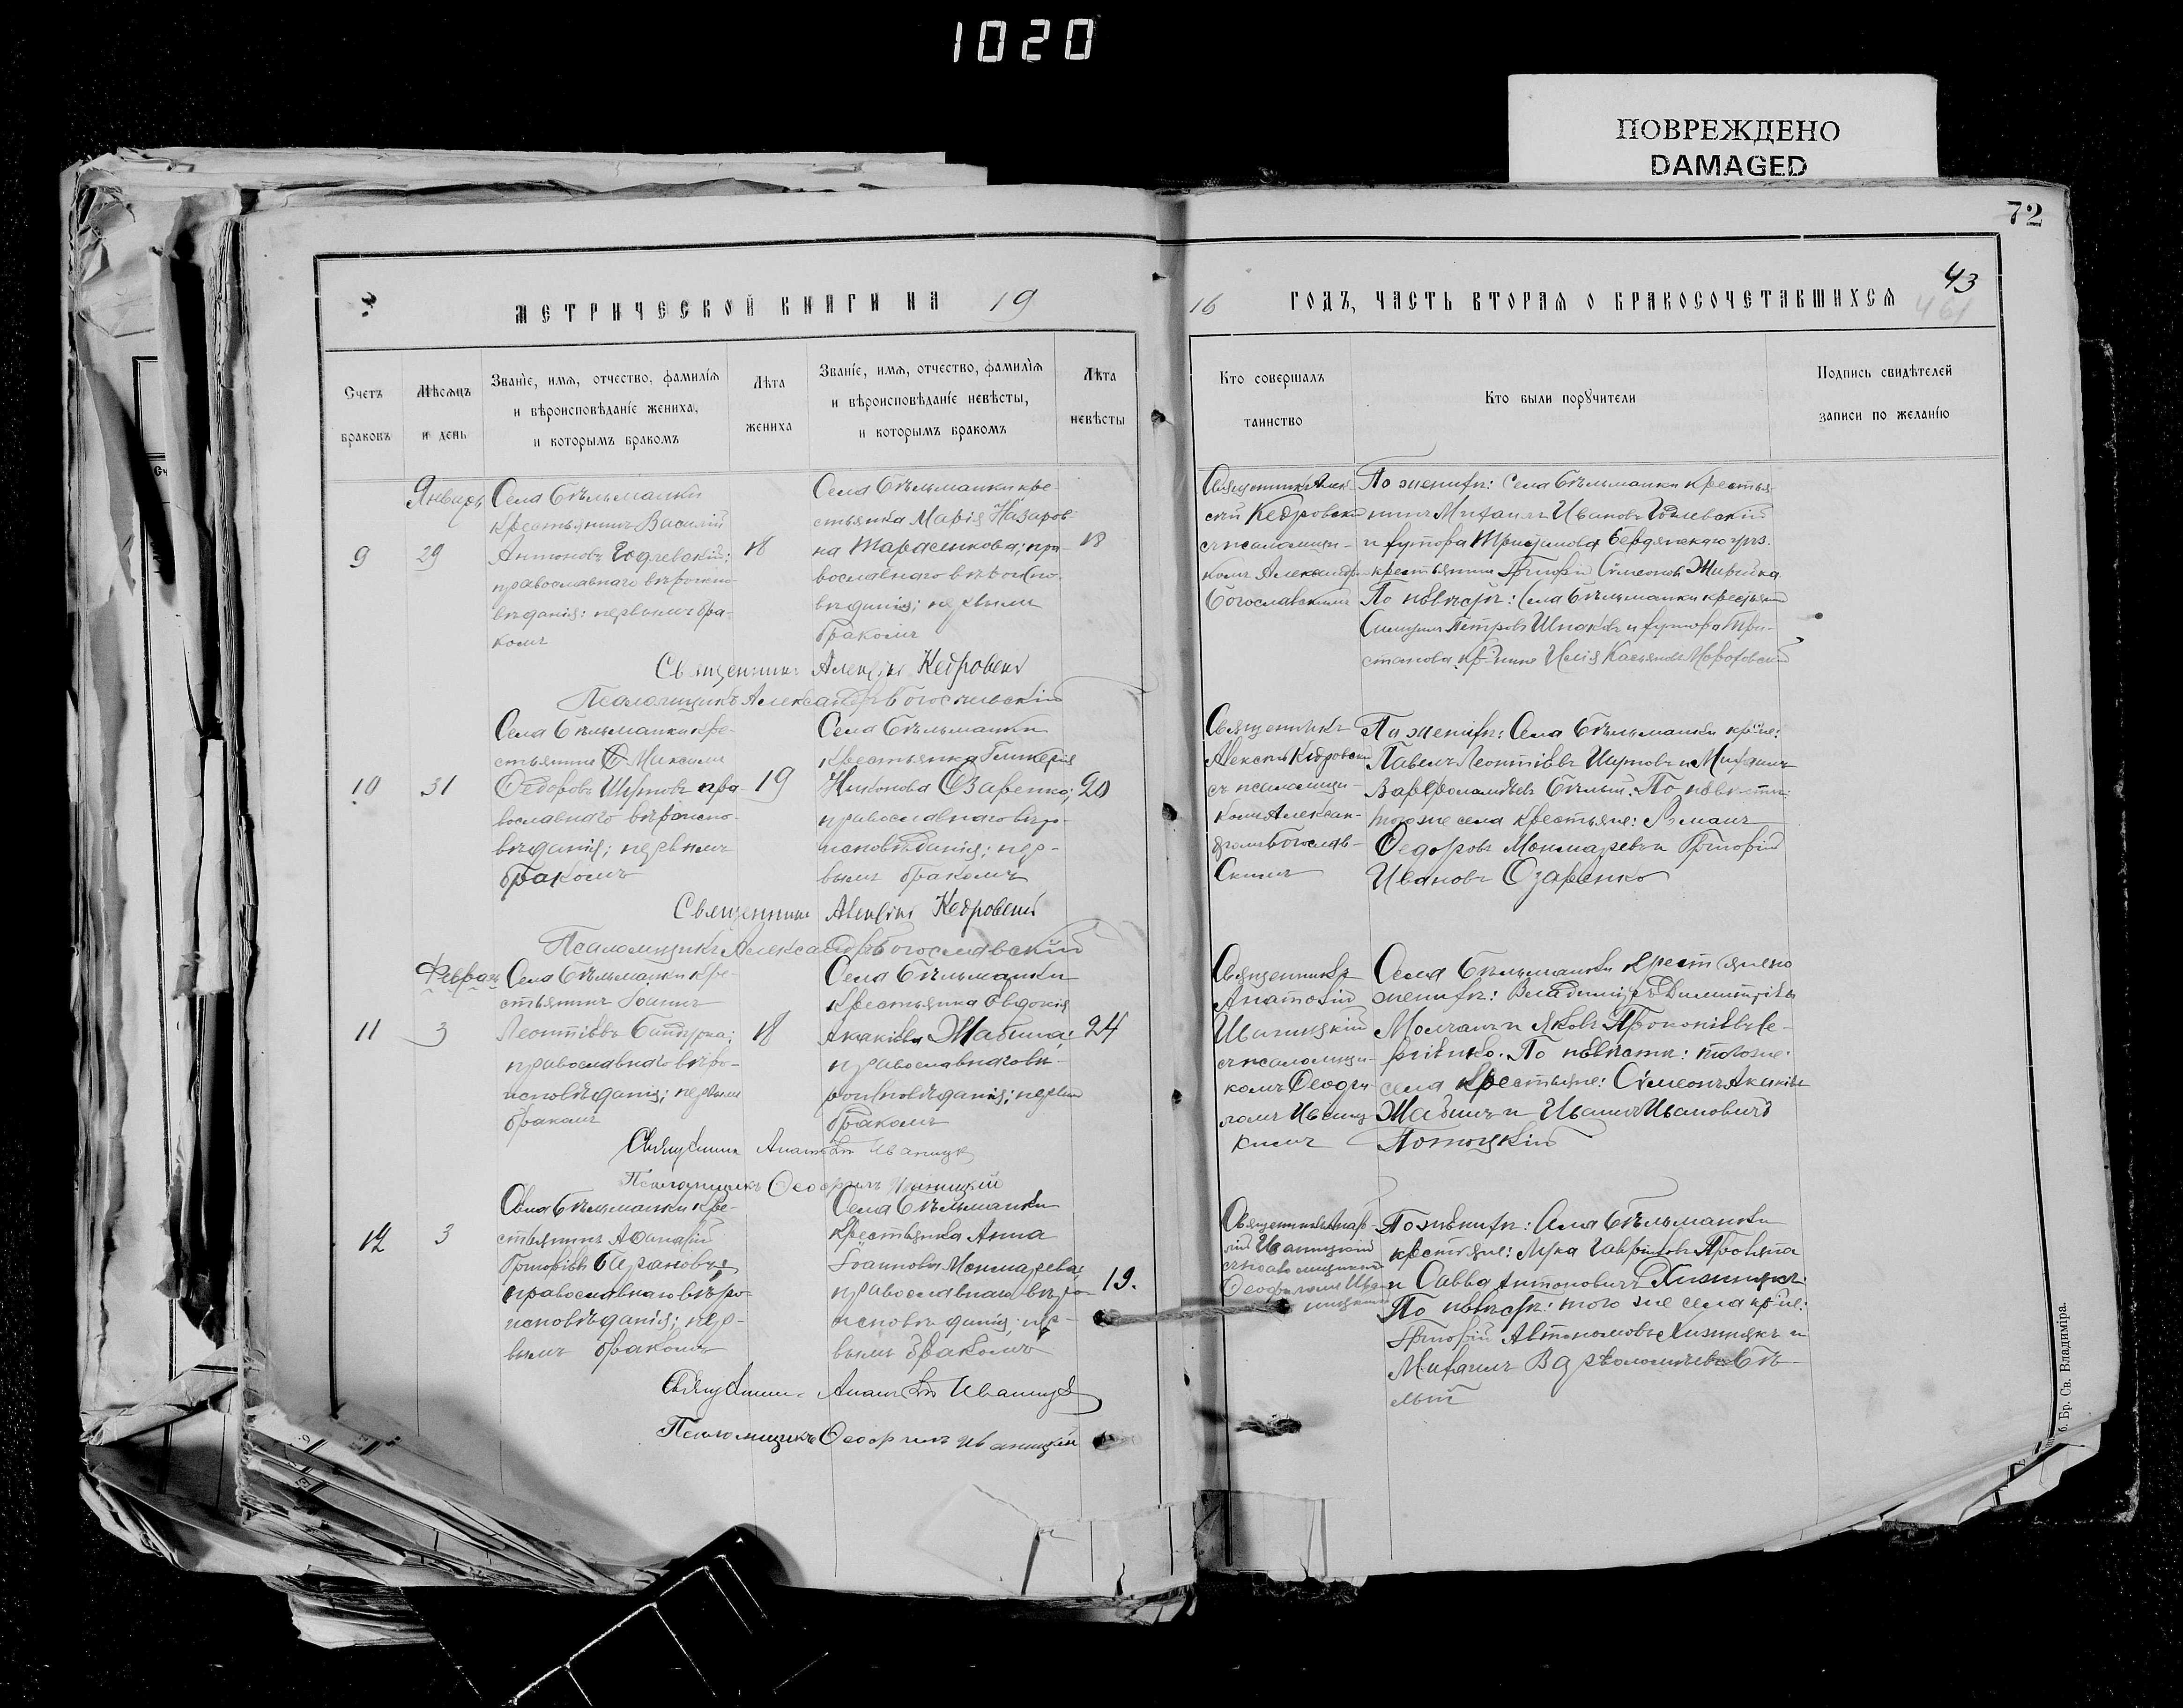 1020
ПОВРЕЖДЕНО
DAMAGED
72
43
461
МЕТРИЧЕСКОЙ КНИГИ НА 19
16 ГОДЪ, ЧАСТЬ ВТОРАЯ О БРАКОСОЧЕТАВШИХСЯ
Счетъ
браковъ
Мѣсяцъ
и день
Званіе, имя, отчество, фамилія
и вѣроисповѣданіе жениха,
и которымъ бракомъ
Лѣта
жениха
Званіе, имя, отчество, фамилія
и вѣроисповѣданіе невѣсты,
и которымъ бракомъ
Лѣта
невѣсты
Кто совершалъ
таинство
Кто были поручители
Подпись свидѣтелей
записи по желанію
9
Январь
29
Села Бѣльманки
крестьянинъ Василій
Антоновъ
православнаго вѣроиспо-
вѣданія: первымъ бра-
комъ
18
Села Бѣльманки кре-
стьянка Марія Назаров-
на Тарасенкова; пра-
вославнаго вѣроиспо-
вѣданія; первымъ
бракомъ
18
Священникъ Алек-
сѣй Кедровскій
съ псаломщи-
комъ Александр.
Богославскимъ
По женихѣ: Села Бѣльманки крестья-
нинъ Михаилъ Ивановъ
и хутора Тристанова Бердянскаго уѣз.
крестьянинъ Григорій Симеоновъ Жирійка.
По невѣстѣ: Села Бѣльманки крестьянинъ
Петровъ Шпаковъ и хутора Три-
станова кр-нинъ Илія Касьяновъ
Священникъ Алексій Кедровскій
Псаломщикъ Александръ Богославскій
10
31
Села Бѣльманки кре-
стьянинъ Максимъ
Ѳедоровъ Шутовъ пра-
вославнаго вѣроиспо-
вѣданія; первымъ
бракомъ
19
Села Бѣльманки
крестьянка Гликерія
Никонова Озаренко;
православнаго вѣро-
исповѣданія; пер-
вымъ бракомъ
20
Священникъ
Алексѣй Кедровскій
съ псаломщи-
комъ Алексан-
дромъ Богослав-
скимъ
По женихѣ: Села Бѣльманки кр-не:
Павелъ Леонтіевъ Шутовъ и Михаилъ
Варфоломѣевъ Бѣлый. По невѣстѣ:
того же села крестьяне: Романъ
Ѳедоровъ Мокшаревъ и Григорій
Ивановъ Озаренко
Священникъ Алексій Кедровскій
Псаломщикъ Александръ Богославскій
11
Февраль
3
Села Бѣльманки кре-
стьянинъ Іоаннъ
Леонтіевъ Бандурка;
православнаго вѣро-
исповѣданія; первымъ
бракомъ
18
Села Бѣльманки
крестьянка Евдокія
Акакіева Жабина;
православнаго вѣ-
роисповѣданія; первымъ
бракомъ
24
Священникъ
Анатолій
Иваницкій
съ псаломщи-
комъ Ѳеофи-
ломъ Иваниц-
кимъ
Села Бѣльманки крестьяне по
женихѣ: Владимиръ Димитріевъ
Молчанъ и Яковъ Прокопіевъ Се-
ргіенко. По невѣстѣ: того же
села крестьяне: Симеонъ Акакіевъ
Жабинъ и Иванъ Ивановичъ
Потоцкій
Священникъ Анатолій Иваницкій
Псаломщикъ Ѳеофилъ Иваницкій
12
3
Села Бѣльманки кре-
стьянинъ Аѳанасій
Григоріевъ Барановъ;
православнаго вѣро-
исповѣданія; пер-
вымъ бракомъ
Села Бѣльманки
крестьянка Анна
Іоаннова Мокшарева;
православнаго вѣро-
исповѣданія; пер-
вымъ бракомъ
19.
Священникъ Анато-
лій Иваницкій
съ псаломщикомъ
Ѳеофиломъ Ива-
ницкимъ
По женихѣ: Села Бѣльманки
крестьяне: Лука Гавріиловъ
и Савва Антоновичъ Хижнякъ.
По невѣстѣ: того же села кр-не:
Григорій Автономовъ Хижнякъ и
Михаилъ Варѳоломѣевъ Бѣ-
лый
Священникъ Анатолій Иваницкій
Псаломщикъ Ѳеофилъ Иваницкій
б. Бр. Св. Владиміра.